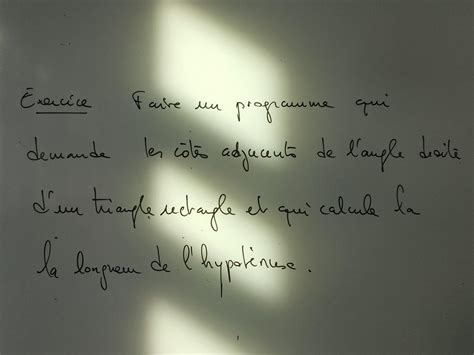 Exercice Faire un programme qui
demande les côtés adjacents de l'angle droite
d'un triangle rectangle et qui calcule la
la longueur de l'hypoténuse.